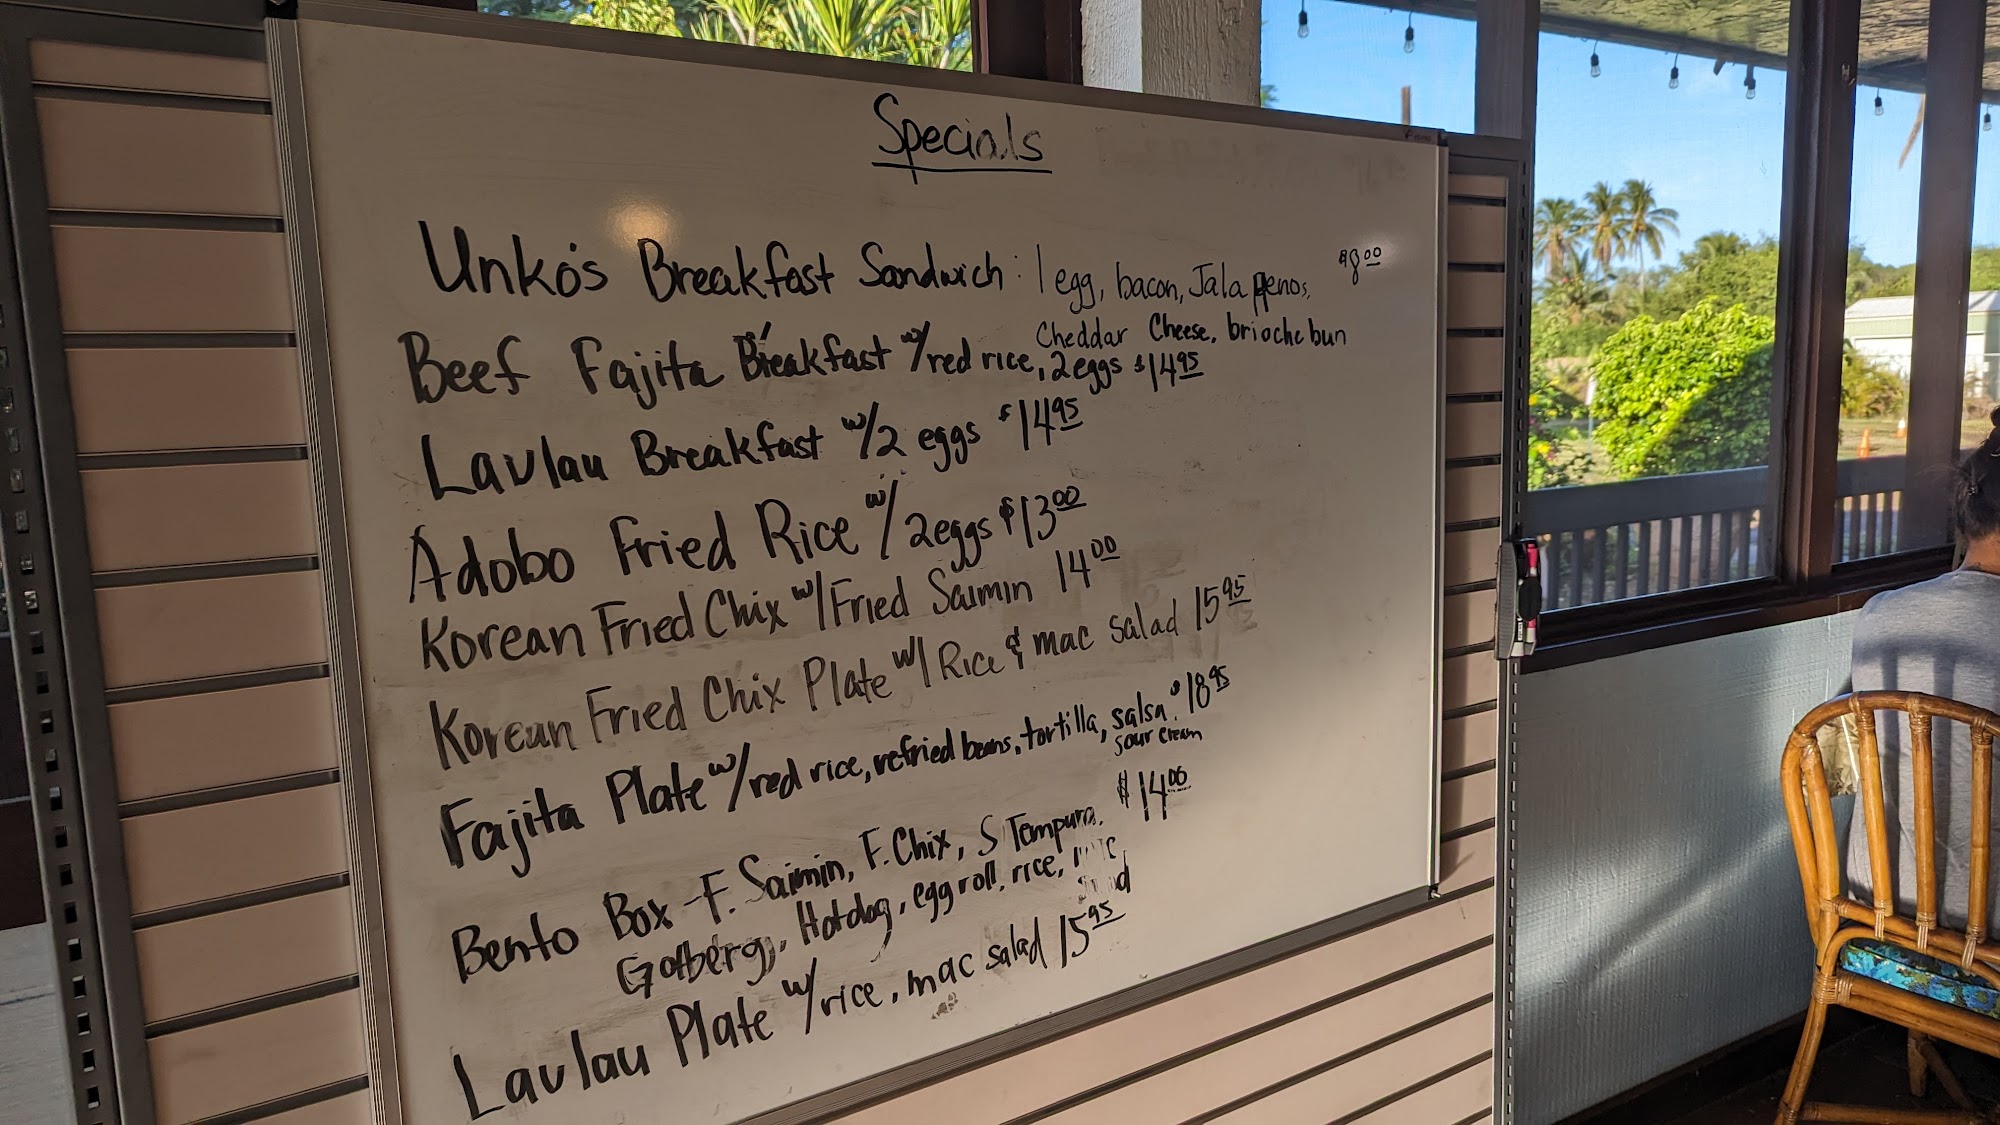 Specials
Unko's Breakfast Sandwich: 1 egg, bacon, Jalappenos, $8.00
Cheddar Cheese, brioche bun
Beef Fajita Breakfast w/red rice, 2 eggs $14.95
Laulau Breakfast w/2 eggs $14.95
Adobo Fried Rice w/2 eggs $13.00
Korean Fried Chix w/Fried Saimin 14.00
Korean Fried Chix Plate w/ Rice & mac salad 15.95
Fajita Plate w/red rice, refried beans, tortilla, salsa. $18.95
sour cream
Bento Box - F. Saimin, F. Chix, S Tempura. $14.00
Goteberg, Hotdog, egg roll, rice,
Laulau Plate w/rice, mac salad 15.95